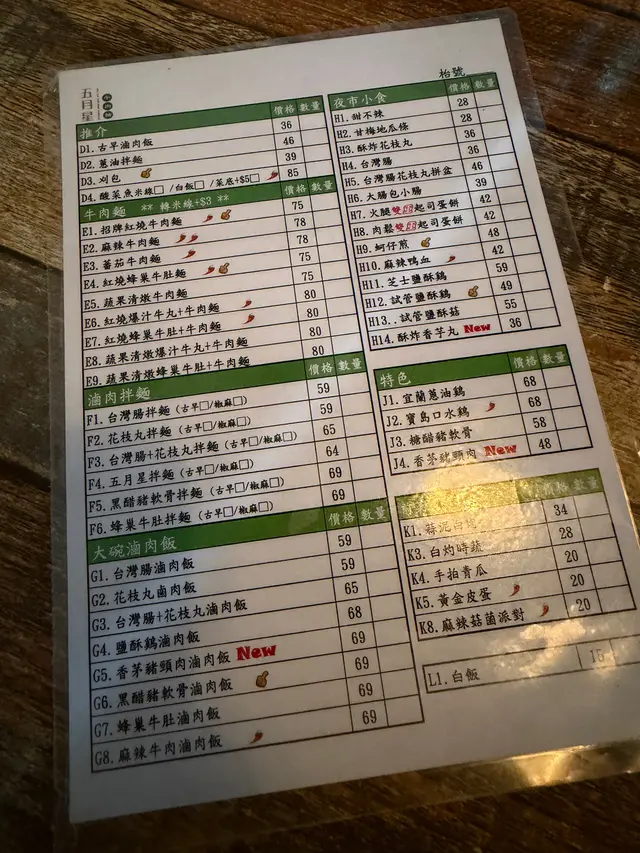 五月星
推介 價格 數量
D1. 古早滷肉飯 36
D2. 蔥油拌麵 46
D3. 刈包 39
D4. 酸菜魚米線□ /白飯□ /菜底+$5□ 85
牛肉麵 ** 轉米線+$3 ** 價格 數量
E1. 招牌紅燒牛肉麵 75
E2. 麻辣牛肉麵 78
E3. 蕃茄牛肉麵 78
E4. 紅燒蜂巢牛肚麵 75
E5. 蔬果清燉牛肉麵 75
E6. 紅燒爆汁牛丸+牛肉麵 80
E7. 紅燒蜂巢牛肚+牛肉麵 80
E8. 蔬果清燉爆汁牛丸+牛肉麵 80
E9. 蔬果清燉蜂巢牛肚+牛肉麵 80
滷肉拌麵 價格 數量
F1. 台灣腸拌麵 (古早□/椒麻□) 59
F2. 花枝丸拌麵 (古早□/椒麻□) 59
F3. 台灣腸+花枝丸拌麵 (古早□/椒麻□) 65
F4. 五月星拌麵 (古早□/椒麻□) 64
F5. 黑醋豬軟骨拌麵 (古早□/椒麻□) 69
F6. 蜂巢牛肚拌麵 (古早□/椒麻□) 69
大碗滷肉飯 價格 數量
G1. 台灣腸滷肉飯 59
G2. 花枝丸鹵肉飯 59
G3. 台灣腸+花枝丸滷肉飯 65
G4. 鹽酥鷄滷肉飯 68
G5. 香茅豬頸肉滷肉飯 New 69
G6. 黑醋豬軟骨滷肉飯 69
G7. 蜂巢牛肚滷肉飯 69
G8. 麻辣牛肉滷肉飯 69
枱號
夜市小食 價格 數量
H1. 甜不辣 28
H2. 甘梅地瓜條 28
H3. 酥炸花枝丸 36
H4. 台灣腸 36
H5. 台灣腸花枝丸拼盆 46
H6. 大腸包小腸 39
H7. 火腿雙起司蛋餅 42
H8. 肉鬆雙起司蛋餅 42
H9. 蚵仔煎 48
H10. 麻辣鴨血 42
H11. 芝士鹽酥鷄 59
H12. 試管鹽酥鷄 49
H13.. 試管鹽酥菇 55
H14. 酥炸香芋丸 New 36
特色 價格 數量
J1. 宜蘭蔥油鷄 68
J2. 寶島口水鷄 68
J3. 糖醋豬軟骨 58
J4. 香茅豬頸肉 New 48
價格 數量
K1. 蒜泥白 34
K3. 白灼時蔬 28
K4. 手拍青瓜 20
K5. 黃金皮蛋 20
K8. 麻辣菇菌派對 20
L1. 白飯 15